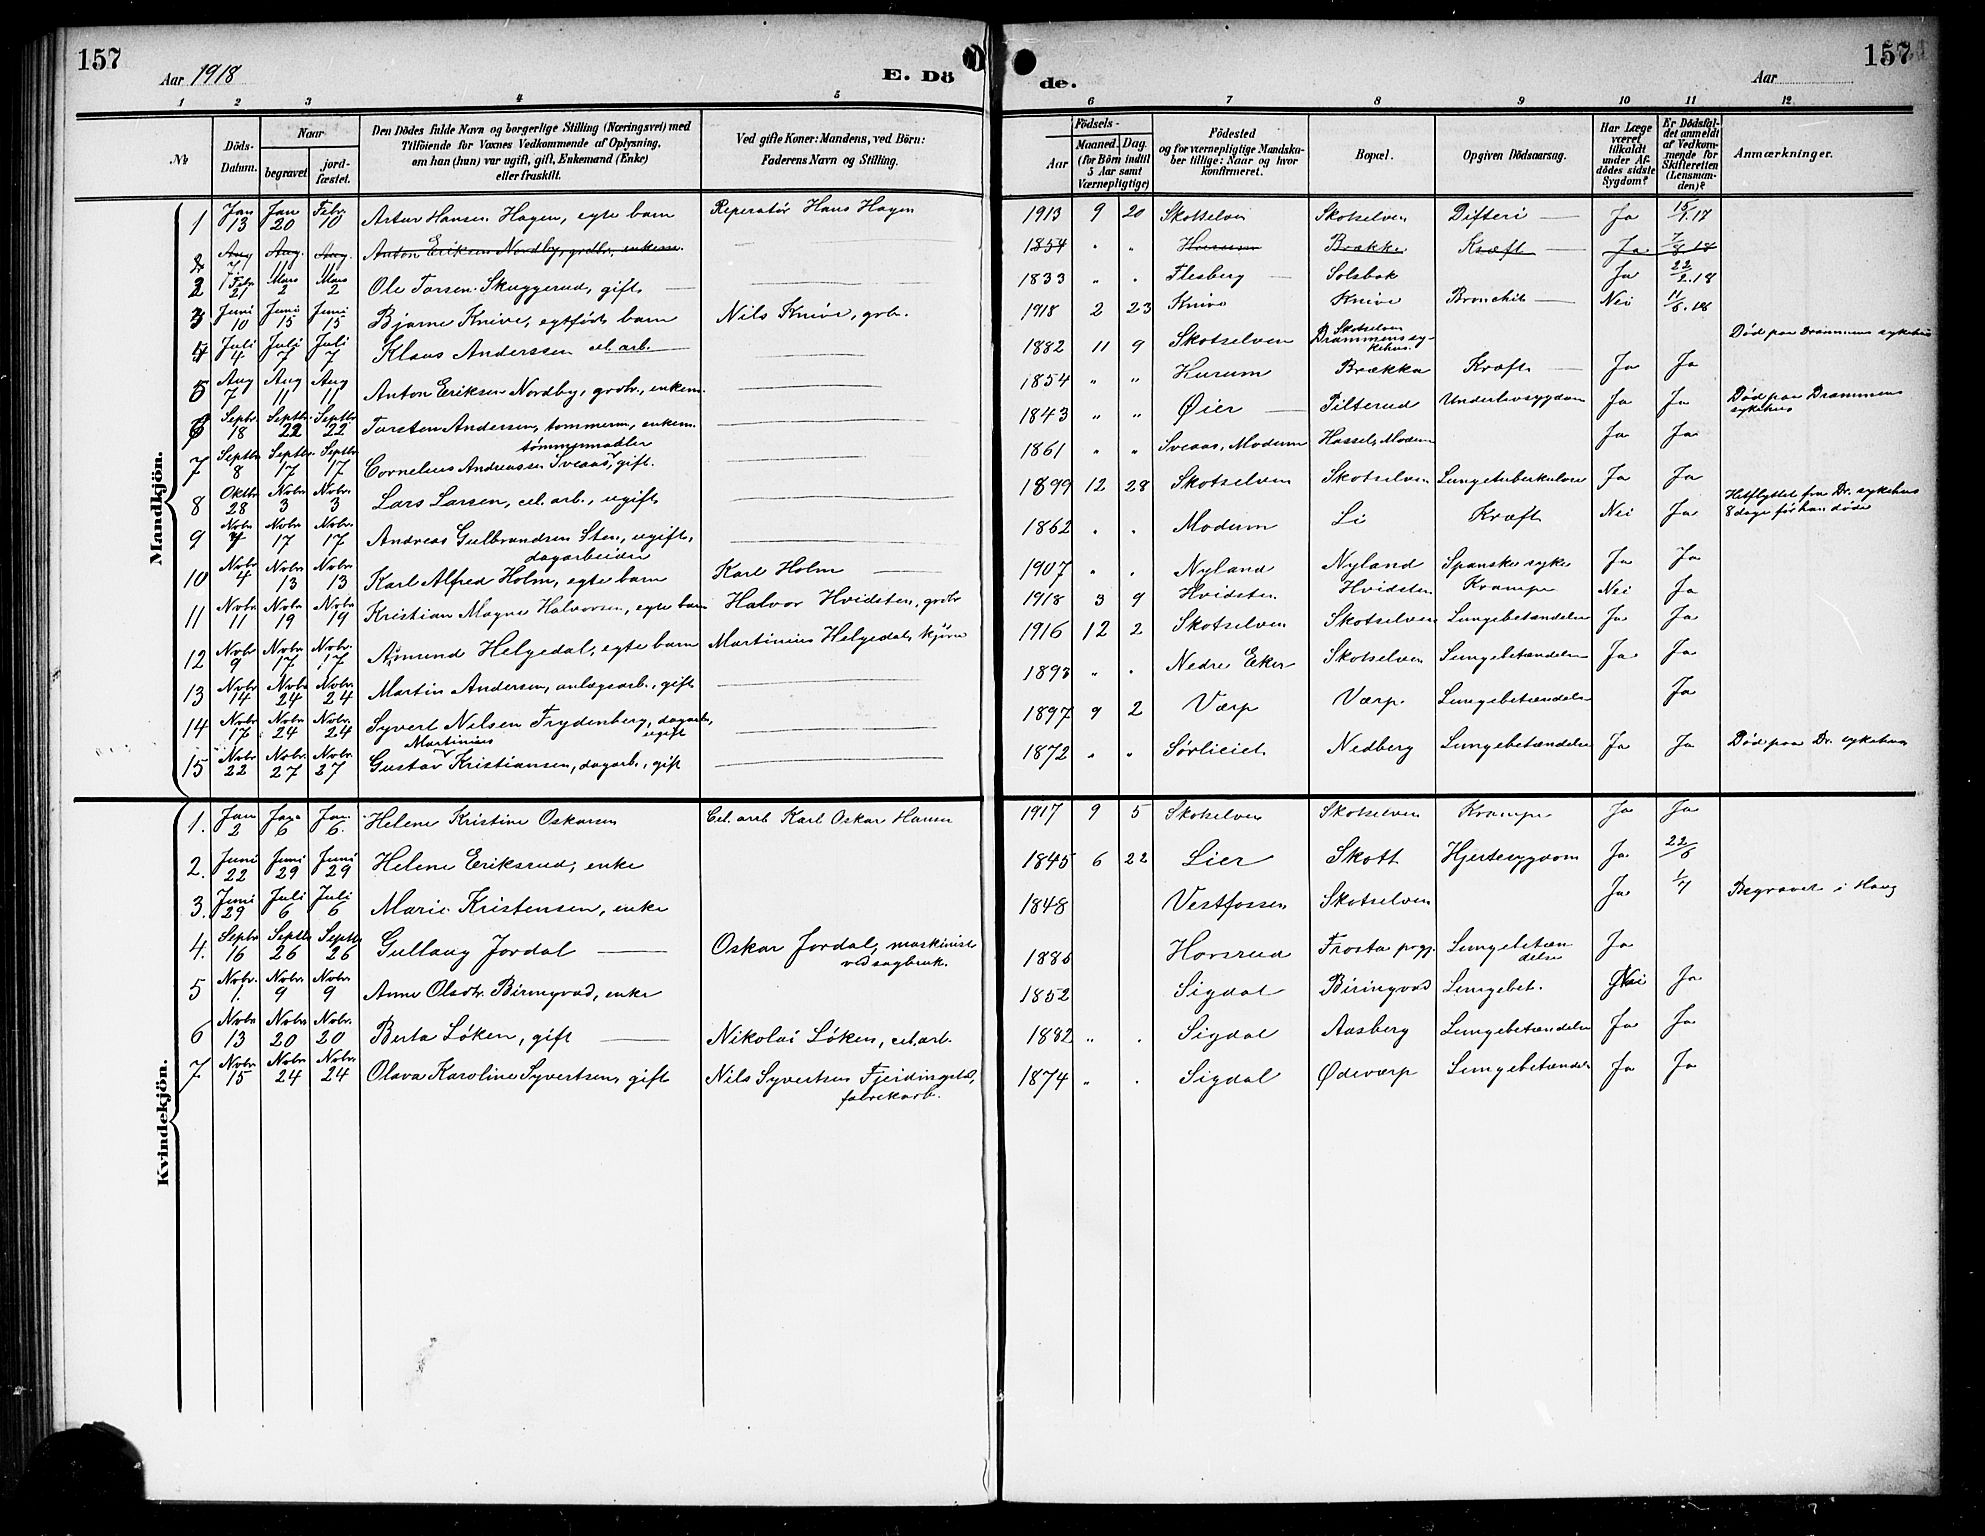 157
157
Aar 1918
E. Dö
de.
Aar
1 2 3 4 5 6 7 8 9 10 11 12
No
Döds-Datum.
Naar
begravet
jordfæstet.
Den Dödes fulde Navn og borgerlige Stilling (Næringsvei) med
Tilföiende for Voxnes Vedkommende af Oplysning,
om han (hun) var ugift, gift, Enkemand (Enke)
eller fraskilt.
Ved gifte Koner: Mandens, ved Börn:
Faderens Navn og Stilling.
Födsels-
Aar
Maaned. Dag.
(for Börn indtil
5 Aar samt
Værnepligtige)
Födested
og for værnepligtige Mandskaber tillige: Naar og hvor
konfirmeret.
Bopæl.
Opgiven Dödsaarsag.
Har Læge
været
tilkaldt
under Afdödes sidste
Sygdom?
Er Dödsfaldet anmeldt
af Vedkommende for
Skifteretten
(Lensmanden)?
Anmærkninger.
Mandkjön.
1 Jan 13 Jan 20 Febr 10 Artur Hansen Hagen, egte barn Reperatør Hans Hagen 1913 9 20 Skotselven Skotselven Difteri Ja 15/1.17
2 Aug 7 Aug. 11 Aug. 11 Anton Eriksen Nordby, grdbr, enkem. 1854 " " Hurum Brækka Kræft Ja 7/8 18
2 Febr 21 Mars 2 Mars 2 Ole Torsen Skuggerud, gift 1833 " " Flesberg Solsbak Ja 22/2.18
3 Juni 10 Juni 15 Juni 15 Bjarne Knive, egtefødt barn Nils Knive, grb. 1918 2 23 Knive Knive Bronchit Nei 11/6.18
4 Juli 4 Juli 7 Juli 7 Klaus Anderssen cel. arb. 1882 11 9 Skotselven Skotselven Drammens sykehus. Død paa Drammens sykehus
5 Aug 7 Aug 11 Aug 11 Anton Eriksen Nordby, grdbr, enkem. 1854 " " Hurum Brækka Kræft Ja Ja
6 Septbr. 18 Septbr. 22 Septbr 22 Torsten Andersen, tommerm, enkem. 1843 " " Øier Tilterud Underlivssygdom Ja Ja Død paa Drammens sykehus
7 Septbr 8 Septbr. 17 Septbr 17 Cornelius Andreassen Sveaas, tømmermaaler gift. 1861 " " Sveaas, Modum Hassel, Modum Ja Ja
8 Oktbr 28 Nvbr. 3 Nvbr. 3 Lars Larsen, cel. arb., ugift 1899 12 28 Skotselven Skotselven Lungetuberkulose Ja Ja
9 Nvbr 7 Nvbr. 17 Nvbr. 17 Andreas Gulbrandsen Sten, ugift, dagarbeider 1862 " " Modum Li Kræft Nei Ja Hitflyttet fra Dr. sykehus 8 dage før han døde
10 Nvbr 4 Nvbr. 13 Nvbr. 13 Karl Alfred Holm, egte barn Karl Holm 1907 " " Nyland Nyland Spanske syke Ja Ja
11 Nvbr 11 Nvbr 19 Nvbr 19 Kristian Magne Halvorsen, egte barn Halvor Hvidsten, grdbr 1918 3 9 Hvidsten Hvidsten Krampe Nei Ja
12 Nvbr 9 Nvbr. 17 Nvbr. 17 Amund Helgedal, egte barn Martinius Helgedal, kjører 1916 12 2 Skotselven Skotselven Lungebetændelse Ja Ja
13 Nvbr 14 Nvbr 24 Nvbr. 24 Martin Andersen, anlægsarb., gift 1893 " " Nedre Eker Skotselven Lungebetændelse Ja Ja
14 Nvbr 17 Nvbr. 24 Nvbr. 24 Syvert Nilsen Frydenberg, dagarb, ugift 1897 9 2 Værp Værp. Lungebetændelse Ja
15 Nvbr. 22 Nvbr. 27 Nvbr. 27 Gustav Martinius Kristiansen, dagarb., gift 1872 " " Nedberg Lungebetændelse Ja Ja Død paa Dr. sykehus
Kvindekjön.
1. Jan 2 Jan 6 Jan 6. Helene Kristine Oskarsen Cel. arb Karl Oskar Hansen 1917 9 5 Skotselven Skotselven Krampe Ja Ja
2. Juni 22 Juni 29 Juni 29 Helene Eriksrud, enke 1845 6 22 Lier Skott Hjertesygdom Ja 22/6
3. Juni 29 Juli 6 Juli 6 Marie Kristensen, enke 1848 Vestfossen Skotselven Ja 1/7 Begravet i Haug
4. Septbr 16 Septbr 26 Septbr 26 Gullaug Jordal Oskar Jordal, maskinist ved sagbruk. 1885 Hovsrud Frosta prgj. Lungebetændelse Ja
5 Nvbr. 1. Nvbr. 9 Nvbr. 9 Anne Olsdtr. Biringvad, enke 1852 Sigdal Biringvad Lungebet. Nei Ja
6 Nvbr 13 Nvbr. 20 Nvbr. 20 Berta Løken, gift Nikolai Løken, cel. arb. 1882 " " Sigdal Aasberg Lungebetændelse Ja Ja
7 Nvbr. 15 Nvbr 24 Nvbr. 24 Olava Karoline Syvertsen, gift Nils Syvertsen, fabrikarb. 1874 " " Sigdal Ødeværp Lungebetændelse Ja Ja